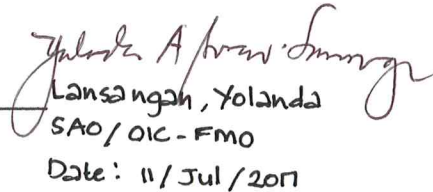 Lansangan, Yolanda
SAO/OIC-FMO
Date: 11/Jul/2017